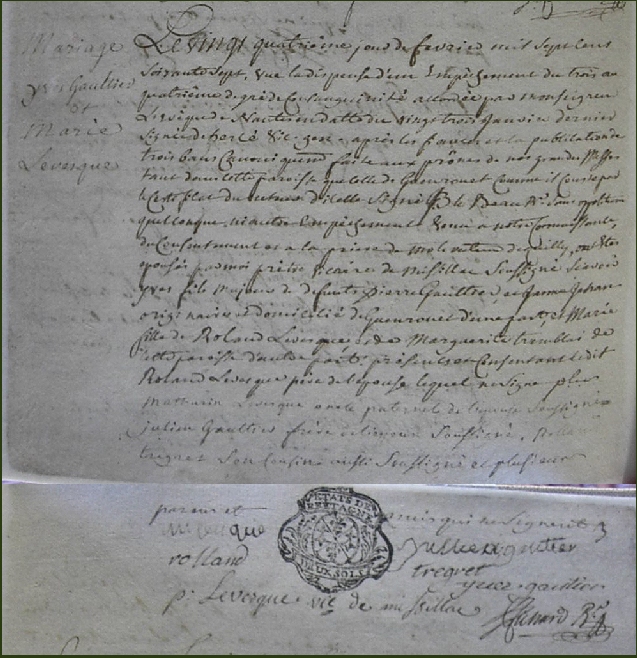 Mariage
yves Gaultier
et
Marie
Levesque
Le vingt quatrième jour de fevrier mil sept cent
soixante sept, vue la dispense d'un Empêchement du trois au
quatrième degré de Consanguinité accordée par monseigneur
L'evêque de Nantes en datte du vingt trois janvier dernier
Signée de herlé vic. gen. après les fiancés et la publication de
trois bans Canoniquem faite aux prônes de nos grandes Messes
tant dans cette paroisse que celle de Guenrouet Comme il Conste par
le Certificat du recteur d'icelle Signé le Beau Rr sans opposition
quelconque, ni autre Empêchement venu a notre connoissance,
du Consentement et a la priere de ont étés
épousés par moi prêtre vicaire de Missillac Soussigné Sçavoir
yves fils Majeur de defunts pierre Gaultier, et janne jehan
originaire et domicilié de Guenrouet d'une part, et Marie
fille de Roland Levesque, et de Marguerite tremblai de
cette paroisse d'autre part, présents et Consentant ledit
Roland Levesque père de l'épouse lequel ne signe plus
Mathurin Levesque oncle paternel de l'épouse Soussigné
julien Gaultier frère de l'époux Soussigné, Rolland
tregret Son Cousin aussi Soussigné et plusieurs
parens et amis qui ne Signent
ETATS DE
BRETAGNE
DEUX SOLS
m leveque
rolland
tregret
yves gautier
p. Levesque vic de missillac